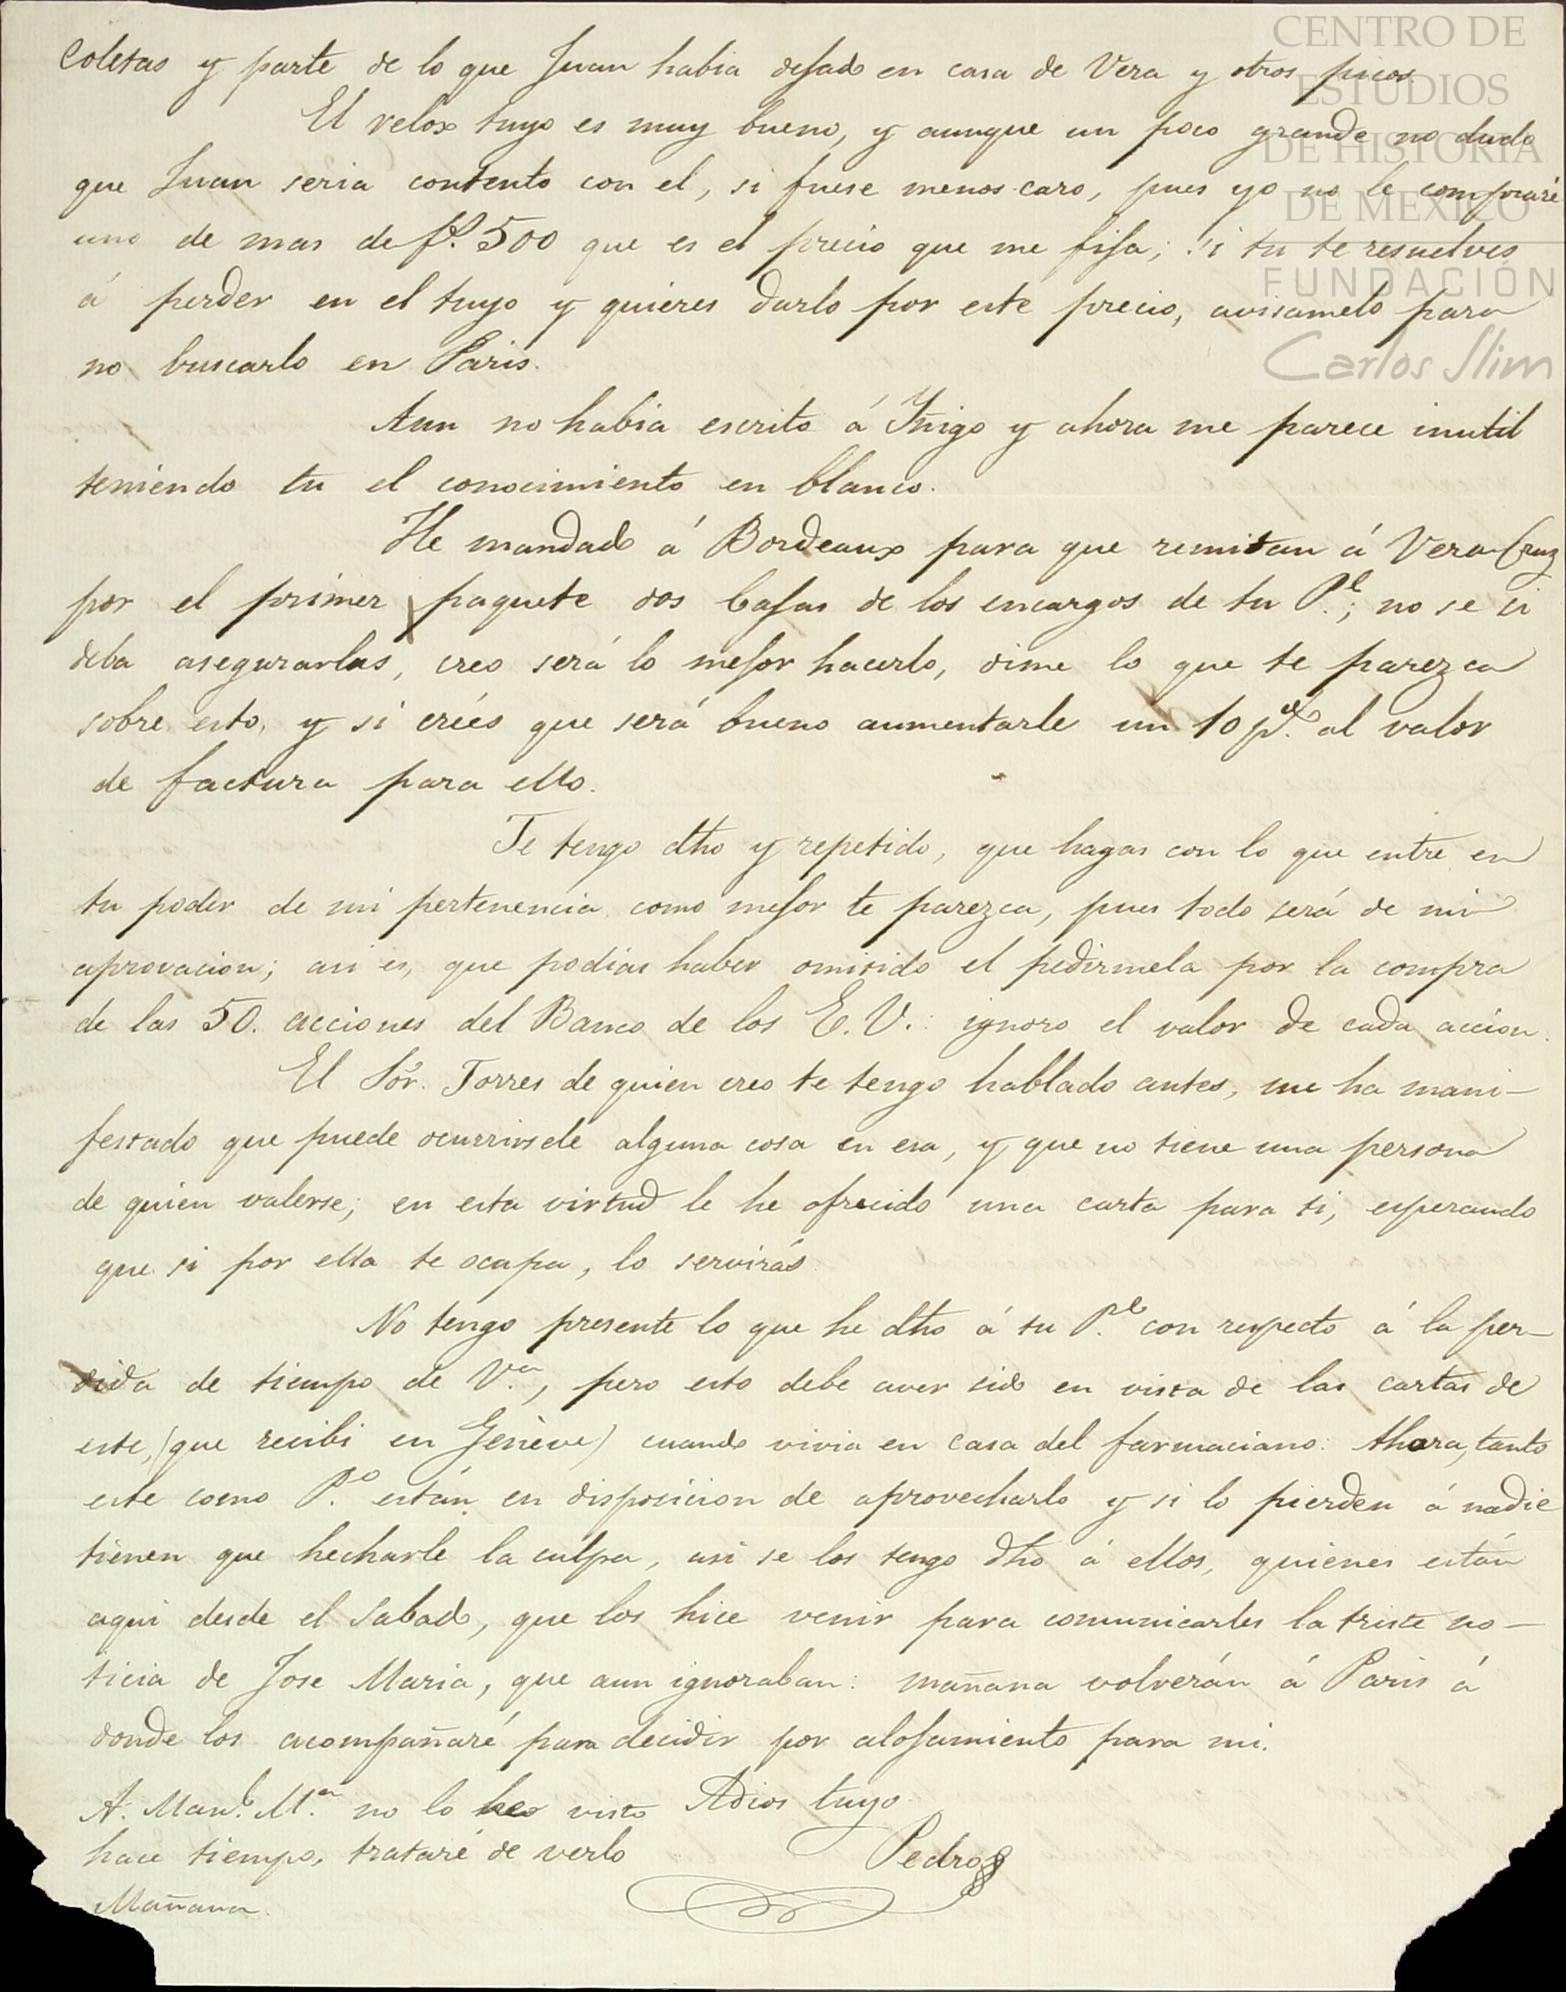 coletas y parte de lo que Juan habia dejado en casa de Vera y otros picos.
El relox tuyo es muy bueno, y aunque un poco grande no dudo
que Juan seria contento con el, si fuese menos caro, pues yo no le compraré
uno de mas de f.s 500 que es el precio que me fija; si tu te resuelves
á perder en el tuyo y quieres darlo por este precio, avisamelo para
no buscarlo en Paris.
Aun no habia escrito á Yñigo y ahora me parece inutil
teniendo tu el conocimiento en blanco.
He mandado á Bordeaux para que remitan á Vera Cruz
por el primer paquete dos Cajas de los encargos de tu P.e; no se si
deba asegurarlas, creo será lo mejor hacerlo, dime lo que te parezca
sobre esto, y si crées que será bueno aumentarle un 10 p.% al valor
de factura para ello.
Te tengo dho y repetido, que hagas con lo que entre en
tu poder de mi pertenencia como mejor te parezca, pues todo será de mi
aprovacion; asi es, que podias haber omitido el pedirmela por la compra
de las 50. acciones del Banco de los E. U.: ignoro el valor de cada accion.
El Sõr. Torres de quien creo te tengo hablado antes, me ha mani-
festado que puede ocurrirsele alguna cosa en esa, y que no tiene una persona
de quien valerse; en esta virtud le he ofrecido una carta para ti, esperando
que si por ella te ocupa, lo servirás.
No tengo presente lo que he dho á tu P.e con respecto á la per-
dida de tiempo de V.a, pero esto debe aver sido en vista de las cartas de
este, (que recibi en Genève) cuando vivia en casa del farmaciano: Ahora, tanto
este como P.o están en disposicion de aprovecharlo y si lo pierden á nadie
tienen que hecharle la culpa, asi se los tengo dho á ellos, quienes están
aqui desde el Sabado, que los hice venir para comunicarles la triste no-
ticia de Jose Maria, que aun ignoraban: mañana volverán á Paris á
donde los acompañaré para decidir por alojamiento para mi.
A. Man.l M.a no lo he visto Adios tuyo.
hace tiempo, trataré de verlo Pedro
Mañana.
CENTRO DE
ESTUDIOS
DE HISTORIA
DE MEXICO
FUNDACIÓN
Carlos Slim